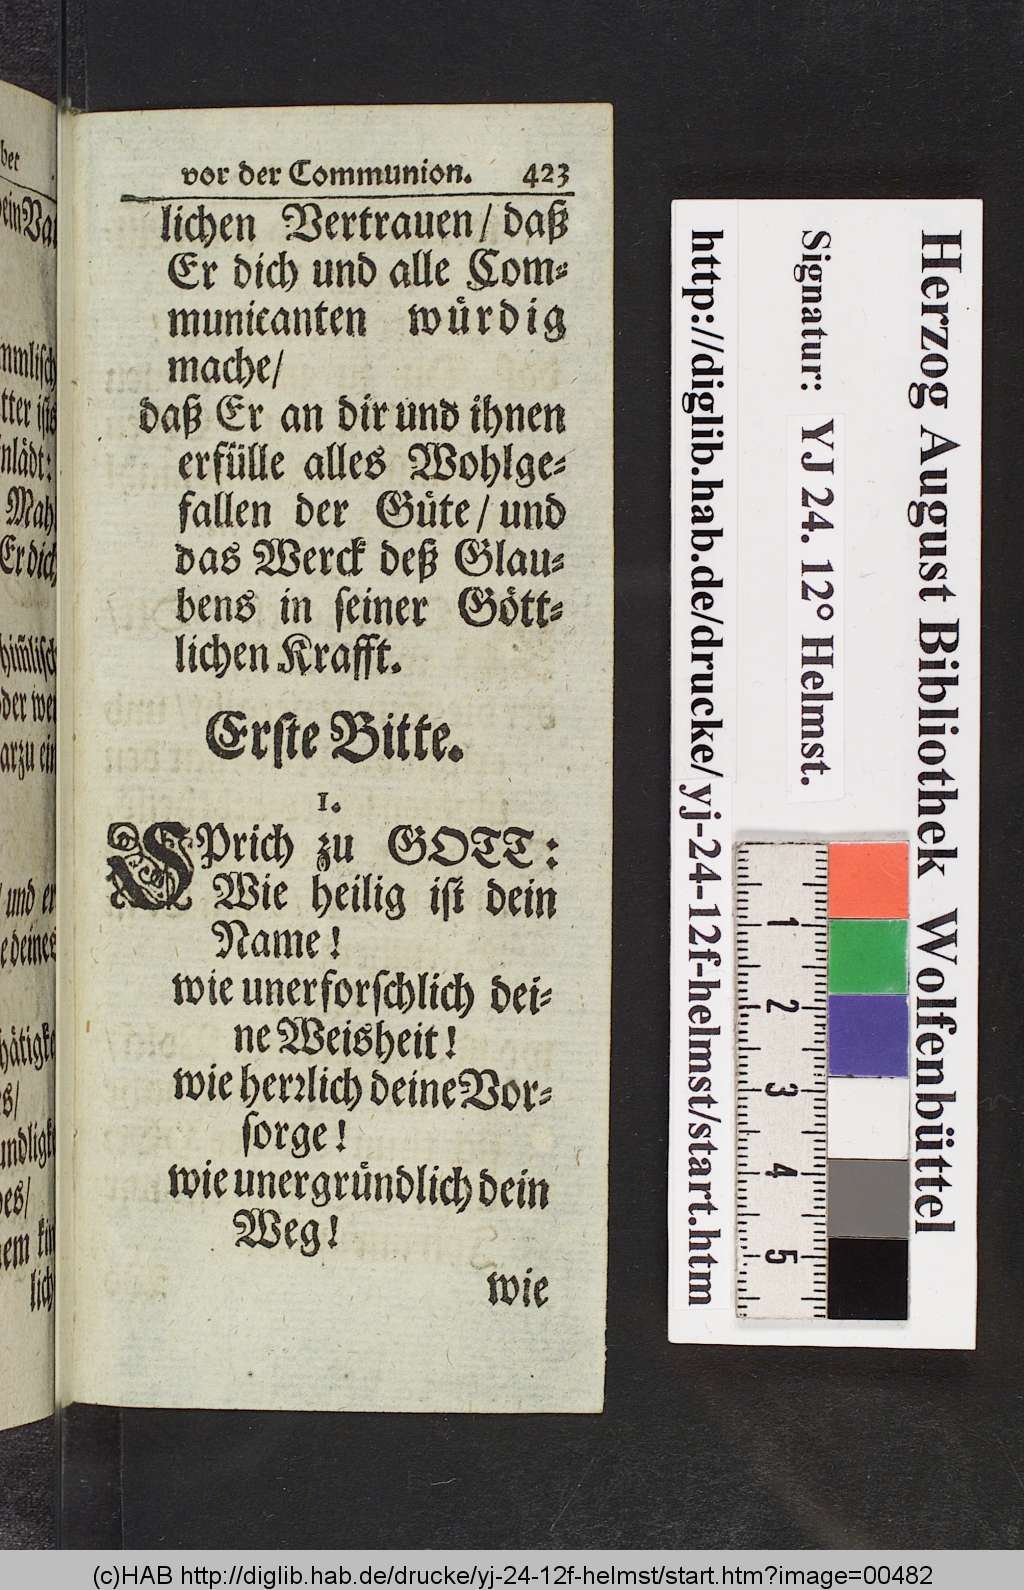 vor der Communion. 423
lichen Vertrauen/ daß
Er dich und alle Com⸗
municanten würdig
mache/
daß Er an dir und ihnen
erfülle alles Wohlge⸗
fallen der Güte/ und
das Werck deß Glau⸗
bens in seiner Gött⸗
lichen Krafft.
Erste Bitte.
1.
SPrich zu GOTT:
Wie heilig ist dein
Name!
wie unerforschlich dei⸗
ne Weisheit!
wie herrlich deine Vor⸗
sorge!
wie unergründlich dein
Weg!
wie
Herzog August Bibliothek Wolfenbüttel
Signatur: YJ 24. 12° Helmst.
http://diglib.hab.de/drucke/yj-24-12f-helmst/start.htm
1
2
3
4
5
(c)HAB http://diglib.hab.de/drucke/yj-24-12f-helmst/start.htm?image=00482